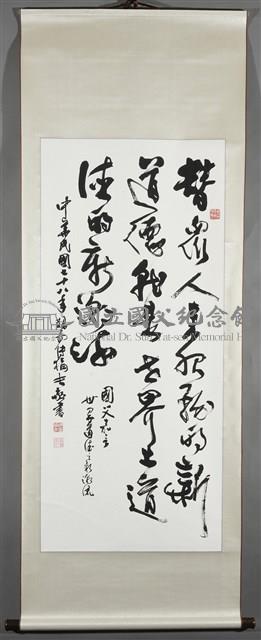 替眾人來服務的新
道德就是世界上道
德的新潮流
國父嘉言
世界道德之新潮流
中華民國七十八年 敬書
國立國父紀念館
National Dr. Sun Yat-sen Memorial Hall